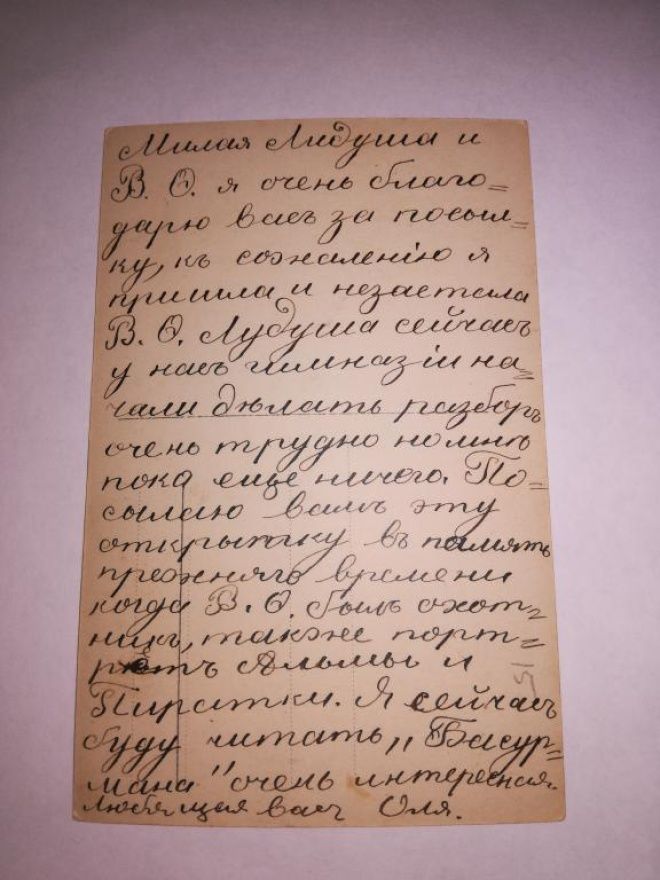 Милая Лидуша и
В. Ѳ. я очень благо=
дарю васъ за посыл=
ку, къ сожаленію я
пришла и незастала
В. Ѳ. Лудуша сейчасъ
у насъ гимназіи на=
чали дѣлать разборъ
очень трудно но мнѣ
пока еще ничего. По=
сылаю вамъ эту
открытку въ память
прежняго времени
когда В. Ѳ. былъ охот=
никъ, также порт=
ретъ Альмы и
Пиратки. Я сейчасъ
буду читать „Басур=
мана" очень интересная.
Любящая васъ Оля.
15